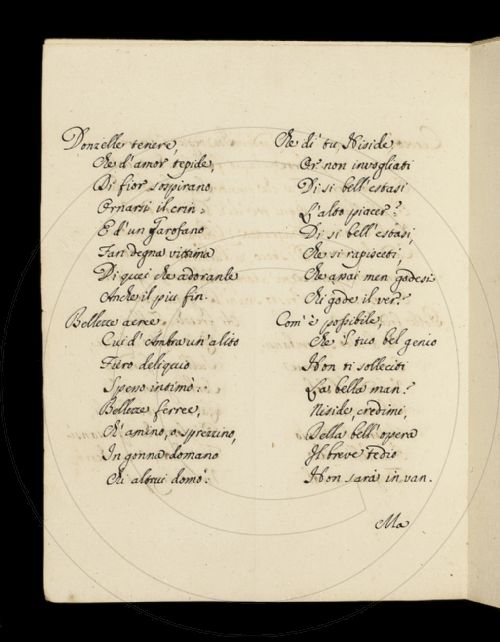 Donzelle tenere,
Che d'amor tepide,
Di fior sospirano
Ornarsi il crin:
E d'un Garofano
Fan degna vittima
Di quei che adorante
Anche il piu fin.
Bellezze aeree
Cui d'ombra un'alito
Fiero deliquio
Spesso intimò:
Bellezze ferree,
Ch'amino, o sprezzino,
In gonna domano
Chi altrui domò:
Che di' tu, Niside
Or non invogliati
Di sì bell'estasi
L'alto piacer?
Di sì bell'estasi,
Che si rapisceti,
Che assai men godesi
Chi gode il ver?
Com'è possibile,
Che 'l tuo bel genio
Non ti solleciti
La bella man?
Niside, credimi,
Della bell'opera
Il breve tedio
Non sarà in van.
Ma